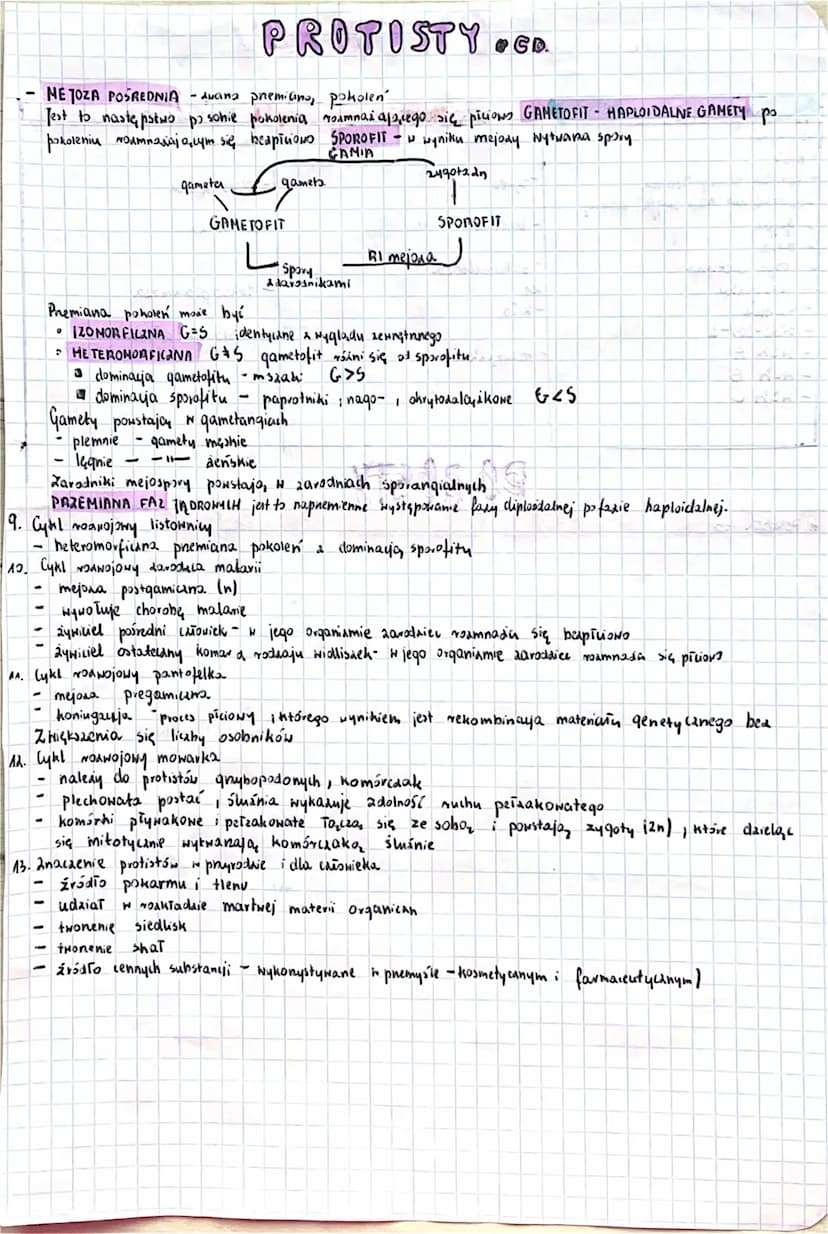 PROTISTY • CD.
- MEJOZA POŚREDNIA - zwana przemianą pokoleń
Jest to następstwo po sobie pokolenia rozmnażającego się płciowo GAMETOFIT - HAPLOIDALNE GAMETY po
pokoleniu rozmnażającym się bezpłciowo SPOROFIT - w wyniku mejozy wytwarza spory
GAMIA
gameta gameta zygota 2n
GAMETOFIT SPOROFIT
R! mejoza
Spory
zarodnikami
Przemiana pokoleń może być
• IZOMORFICZNA G=S identyczne z wyglądu zewnętrznego
• HETEROMORFICZNA G≠S gametofit różni się od sporofitu
dominacja gametofitu - mszaki G>S
dominacja sporofitu - paprotniki, nago-, okrytozalążkowe G<S
Gamety powstają w gametangiach
- plemnie - gamety męskie
- lęgnie - -"- żeńskie
Zarodniki mejospory powstają w zarodniach sporangialnych
PRZEMIANA FAZ JĄDROWYCH jest to naprzemienne występowanie fazy diploidalnej po fazie haploidalnej.
9. Cykl rozwojowy listownicy
- heteromorficzna przemiana pokoleń z dominacją sporofitu
10. Cykl rozwojowy zarodźca malarii
- mejoza postgamiczna (n)
- wywołuje chorobę malarie
- żywiciel pośredni człowiek - w jego organizmie zarodziec rozmnaża się bezpłciowo
- żywiciel ostateczny komar z rodzaju widliszek - w jego organizmie zarodziec rozmnaża się płciowo
11. Cykl rozwojowy pantofelka
- mejoza pregamiczna
- koniugacja - proces płciowy, którego wynikiem jest rekombinacja materiału genetycznego bez
Zwiększenia się liczby osobników
12. Cykl rozwojowy rulika
- należy do protistów grzybopodobnych, komórczak
- plechowata postać, śluźnia wykazuje zdolność ruchu pełzakowatego
- komórki pływakowe i pełzakowate łączą się ze sobą i powstają zygoty (2n), które dzieląc
się mitotycznie wytwarzają komórczaka śluźnie
13. Znaczenie protistów w przyrodzie i dla człowieka
- źródło pokarmu i tlenu
- udział w rozkładzie martwej materii organiczn
- tworzenie siedlisk
- tworzenie skał
- źródło cennych substancji - wykorzystywane w przemyśle - kosmetycznym i farmaceutycznym)